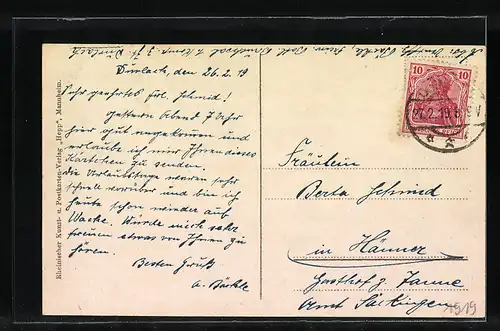 Durlach, den 26.2.19
Sehr geehrtes Frl. Schmid!
Gestern Abend 7 Uhr
hier gut angekommen und
erlaube ich mir Ihnen dieses
Kärtchen zu senden.
Die Urlaubstage waren sehr
schnell vorüber und bin ich
heute schon wieder auf
Wache. Würde mich sehr
freuen etwas von Ihnen zu
hören.
Besten Gruß
A. Bächle
Rheinischer Kunst- u. Postkarten-Verlag „Hepp“, Mannheim.
10 10
27.2.19
Fräulein
Berta Schmid
in Hänner
Gasthof z. Tanne
Amt Säckingen
1919